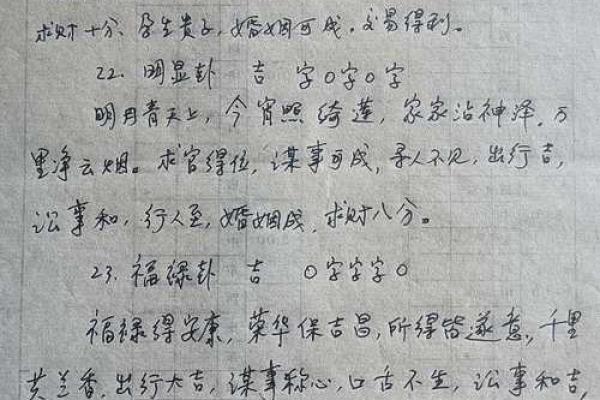 求财十分、孕生贵子,婚姻可成,交易得利。
22. 明显卦 吉 字〇字〇字
明月青天上,今宵照绮莲,家家沾神泽,万
里净云烟。求官得位,谋事可成,寻人不见,出行吉,
讼事和,行人至,婚姻成,求财八分。
23. 福禄卦 吉 〇字字字〇
福禄得安康,荣华保吉昌,所得皆遂意,千里
共兰香,出行大吉,谋事称心,口舌不生,讼事和吉,